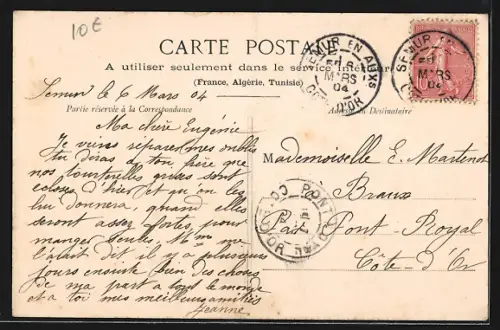 10€
CARTE POSTALE
A utiliser seulement dans le service intérieur
(France, Algérie, Tunisie)
Semur le 6 Mars 04
Partie réservée à la Correspondance
Adresse du Destinataire
Ma chère Eugénie
Je viens réparer mes oublis
tu diras à ton frère que
nos tourterelles qu'ils sont
closes d'hier et qu'on les
lui donnera, quand elles
seront assez fortes, pour
manger seules. Mme ma
l'a dit il y a plusieurs
jours ensuite bien des choses
de ma part à tout le monde
et a toi mes meilleures amitiés
Jeanne
Mademoiselle E. Martenot
Braux
Par Pont-Royal
Côte-d'Or
SEMUR EN AUXS
MARS
04
CÔTE D'OR
SEMUR EN
MARS
04
PONT
CÔTE D'OR